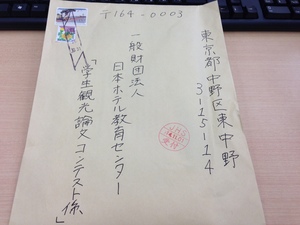 〒164-0003
東京都中野区東中野
3-15-14
一般財団法人
日本ホテル教育センター
「学生観光論文コンテスト係」